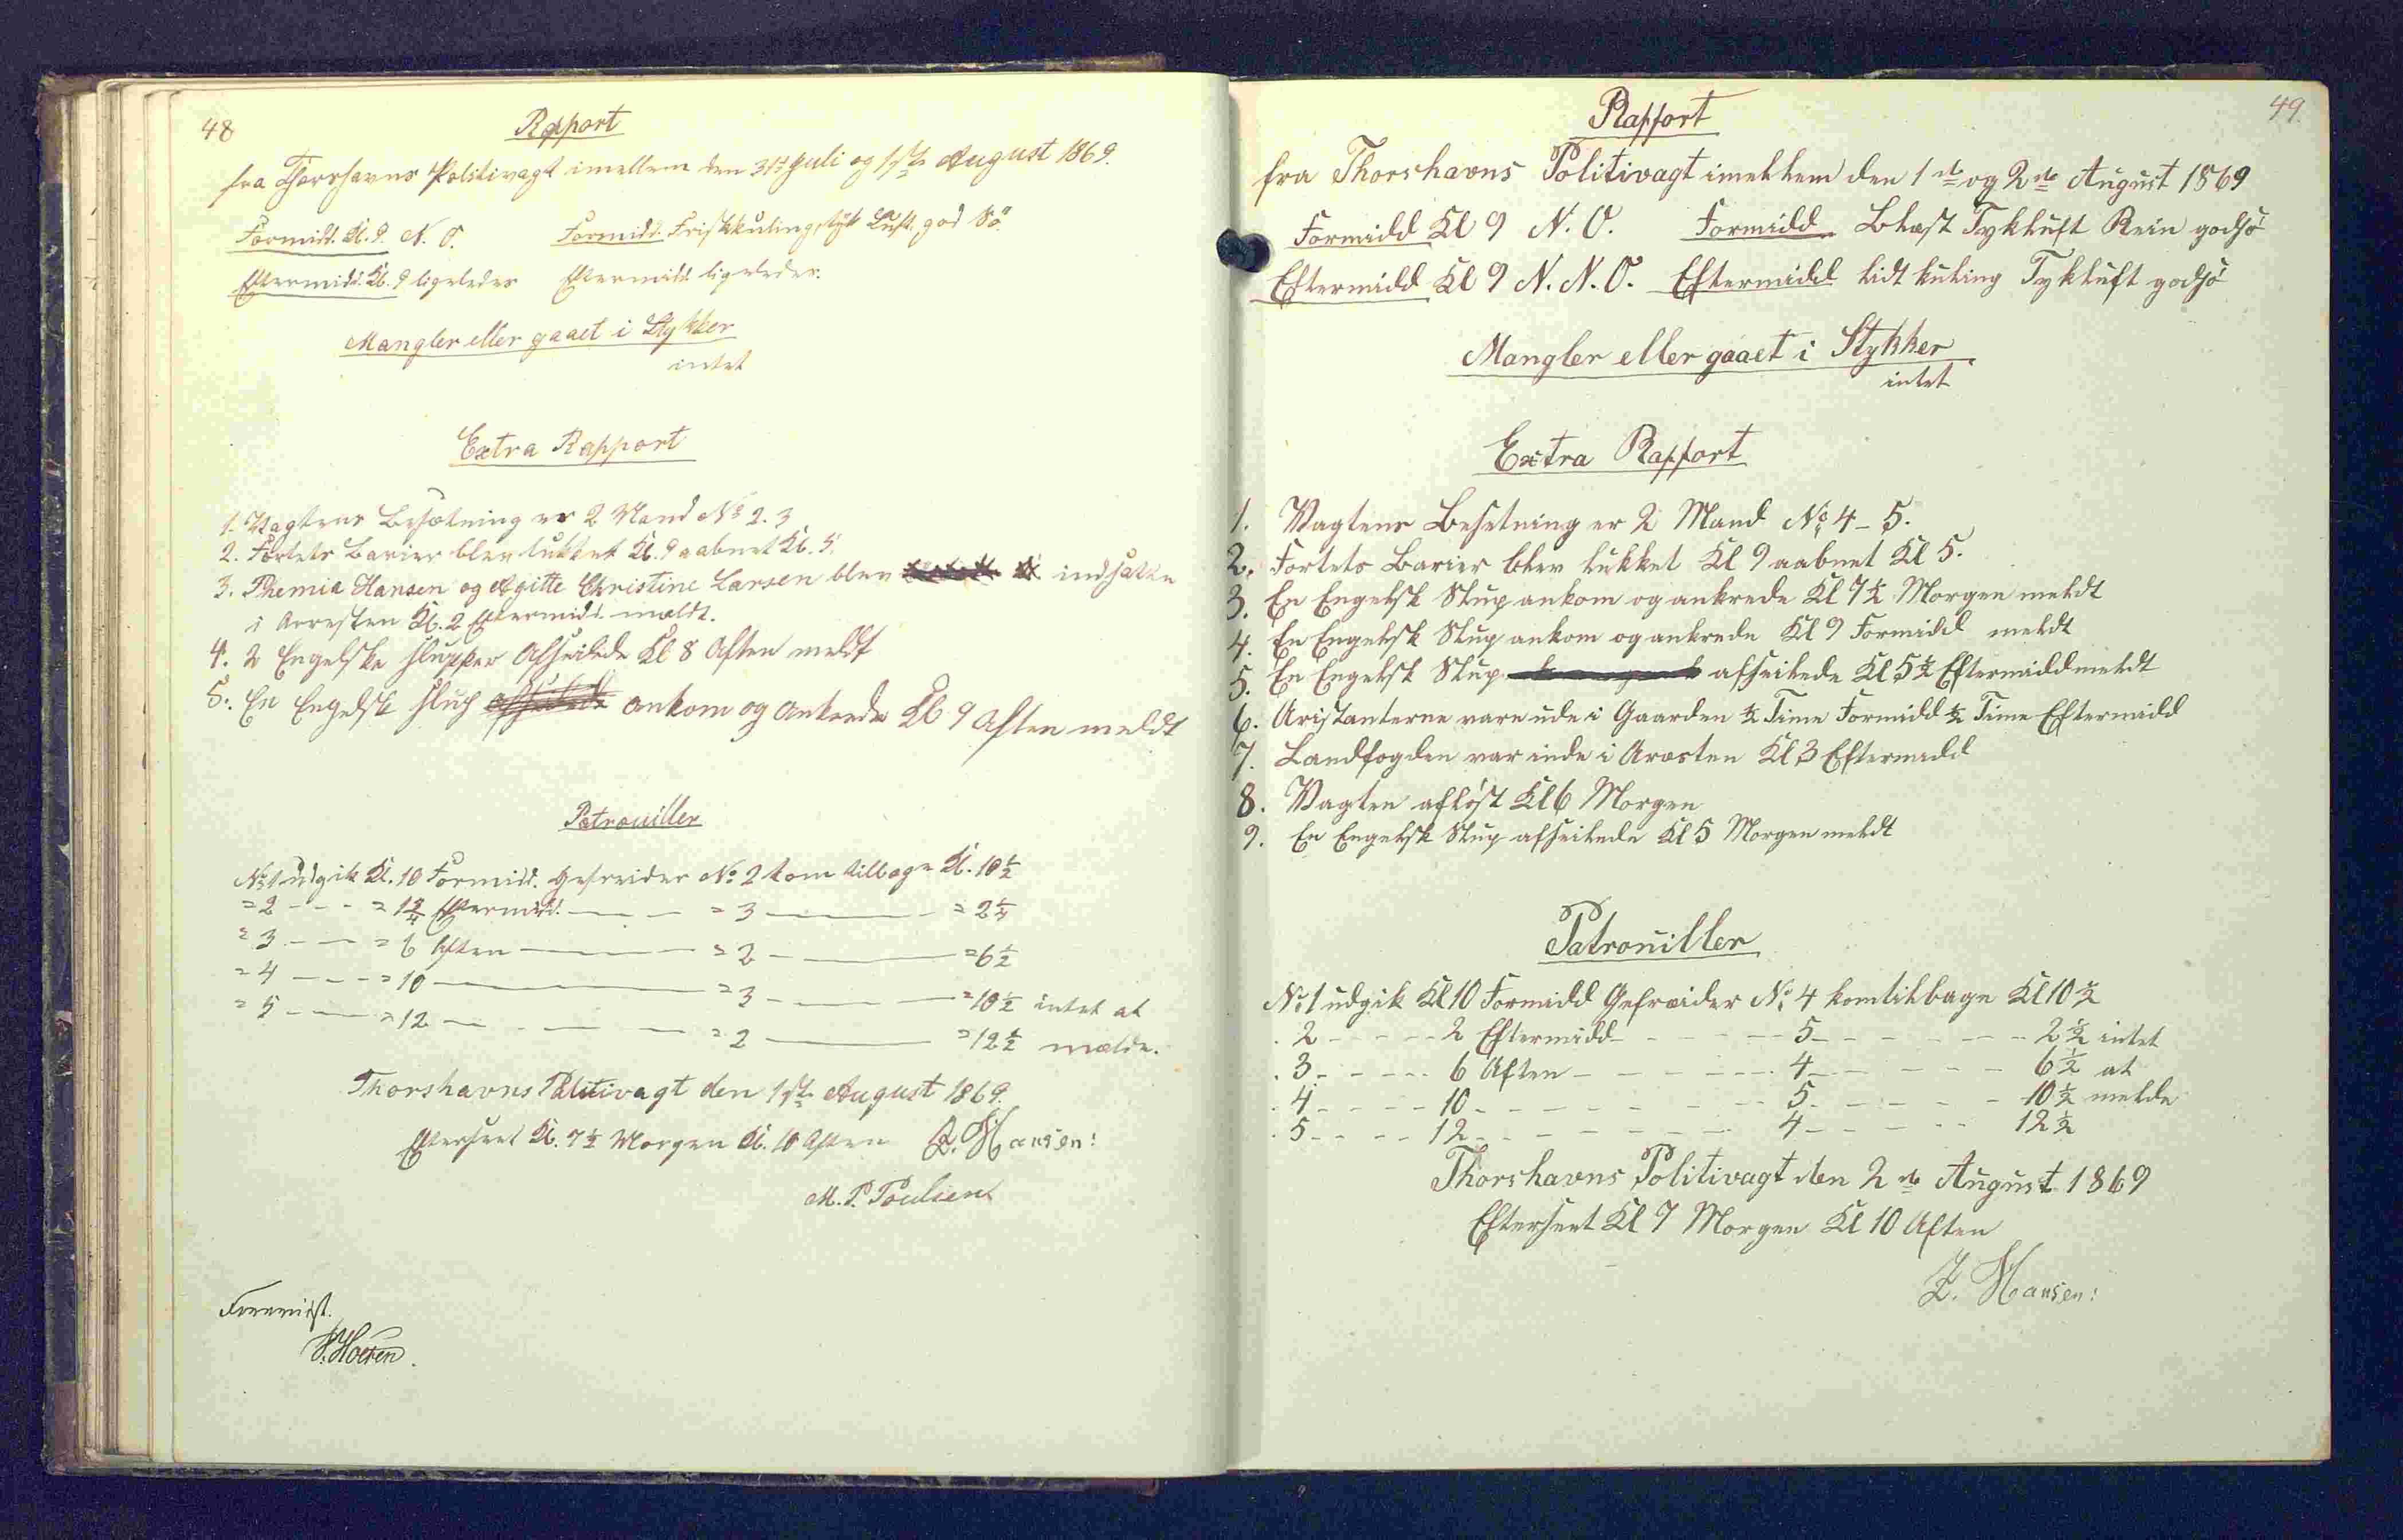 48
Rapport
fra Thorshavns Politivagt imellem den 31te Juli og 1ste August 1869.
Formidd. Kl. 9. N. O. Formidd. Frisk kuling, tyk Luft, god Sö.
Eftermidd. Kl. 9 ligeledes Eftermidd. ligeledes.
Mangler eller gaaet i Stykker
intet
Extra Rapport
1. Vagtens Besætning er 2 Mand No 2. 3
2. Fortets Barier blev lukket Kl. 9 aabnet Kl. 5.
3. Themia Hansen og Agitte Christine Larsen blev indsatte
i Arresten Kl. 2 Eftermidd. mældt.
4. 2 Engelske slupper Afseilede Kl 8 Aften meldt
5. En Engelsk slup afseilede ankom og Ankrede Kl 9 Aften meldt
Patrouiller
No 1 udgik Kl. 10 Formidd. Gefreider No 2 kom tilbage Kl. 10½
= 2 - - - = 1¾ Eftermidd. — — = 3 — — = 2¼
= 3 - — = 6 Aften — — = 2 — — = 6½
= 4 - — = 10 — — = 3 — — = 10½ intet at
= 5 - — = 12 — — = 2 — — = 12½ mælde.
Thorshavns Politivagt den 1ste August 1869.
Efterseet Kl. 7½ Morgen Kl. 10 Aften Z. Hansen:
M. P. Poulsen
Foreviist.
49.
Rapport
fra Thorshavns Politivagt imellem den 1ste og 2de August 1869
Formidd Kl 9 N. O. Formidd Blæst Tykluft Rein godsö
Eftermidd Kl 9 N. N. O. Eftermidd lidt kuling Tykluft godsö
Mangler eller gaaet i Stykker
intet
Extra Rapport
1. Vagtens Besetning er 2 Mand No 4 - 5.
2. Fortets Barier blev lukket Kl 9 aabnet Kl 5.
3. En Engelsk Slup ankom og ankrede Kl 7½ Morgen meldt
4. En Engelsk Slup ankom og ankrede Kl 9 Formidd meldt
5. En Engelsk Slup afseilede Kl 5½ Eftermidd meldt
6. Aristanterne vare ude i Gaarden ½ Time Formidd ½ Time Eftermidd
7. Landfogden var inde i Aræsten Kl 3 Eftermidd
8. Vagten aflöst Kl 6 Morgen
9. En Engelsk Slup afseilede Kl 5 Morgen meldt
Patrouiller
No 1 udgik Kl 10 Formidd Gefræider No 4 kom tilbage Kl 10½
. 2 - - - - - 2 Eftermidd - - - - 5 - - - - - - 2½ intet
. 3 - - - - - 6 Aften - - - - - 4 - - - - - 6½ at
. 4 - - - - 10 - - - - - - - 5 - - - - - 10½ melde
. 5 - - - - 12 - - - - - - - 4 - - - - - 12½
Thorshavns Politivagt den 2de August 1869
Efterseet Kl 7 Morgen Kl 10 Aften
Z. Hansen: